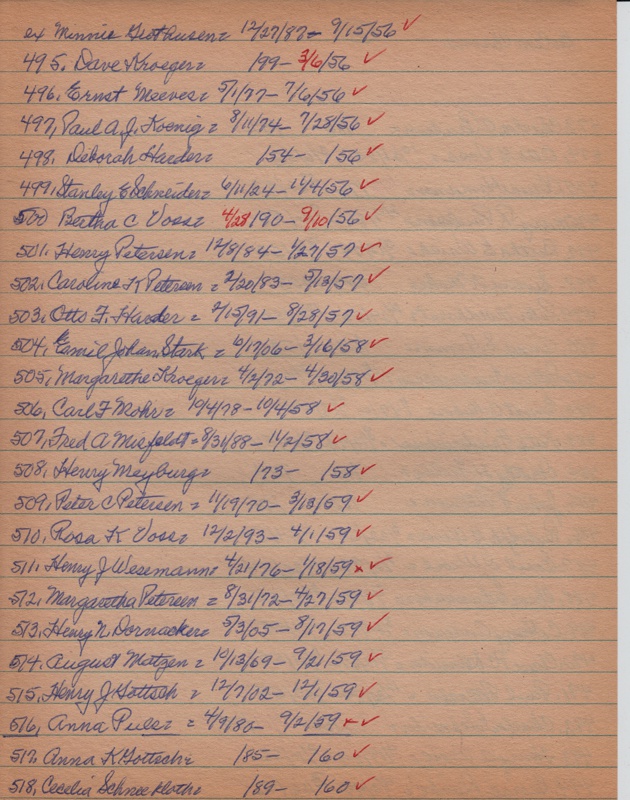 ex Minnie Grothusen = 12/27/87 - 9/15/56 ✓
495. Dave Kroeger = /99 - 3/6/56 ✓
496. Ernst Meeves = 5/1/77 - 7/6/56 ✓
497. Paul A.J. Koenig = 8/11/74 - 7/28/56 ✓
498. Deborah Harder = /54 - /56 ✓
499. Stanley E Schneider = 6/11/24 - 11/4/56 ✓
500 Bertha C Voss = 4/28/90 - 9/10/56 ✓
501. Henry Petersen = 12/8/84 - 1/27/57 ✓
502. Caroline K Petersen = 2/20/83 - 5/13/57 ✓
503. Otto F. Harder = 2/15/91 - 8/28/57 ✓
504. Emil Johan Stark = 6/17/06 - 3/16/58 ✓
505. Margarethe Kroeger = 4/2/72 - 4/30/58 ✓
506. Carl F Mohr = 10/4/78 - 10/4/58 ✓
507. Fred A Misfeldt = 8/31/88 - 11/2/58 ✓
508. Henry Meyburg = /73 - /58 ✓
509. Peter C Petersen = 11/19/70 - 3/13/59 ✓
510. Rosa K Voss = 12/2/93 - 4/1/59 ✓
511. Henry J Wesemann = 4/21/76 - 1/18/59 x ✓
512. Margaretha Petersen = 8/31/72 - 4/27/59 ✓
513. Henry N. Dornacker = 5/3/05 - 8/17/59 ✓
514. August Matzen = 10/13/69 - 9/21/59 ✓
515. Henry J Gottsch = 12/7/02 - 12/1/59 ✓
516. Anna Puls = 4/9/80 - 9/2/59 x ✓
517. Anna K Gottsch = /85 - /60 ✓
518. Cecelia Schneekloth = /89 - /60 ✓